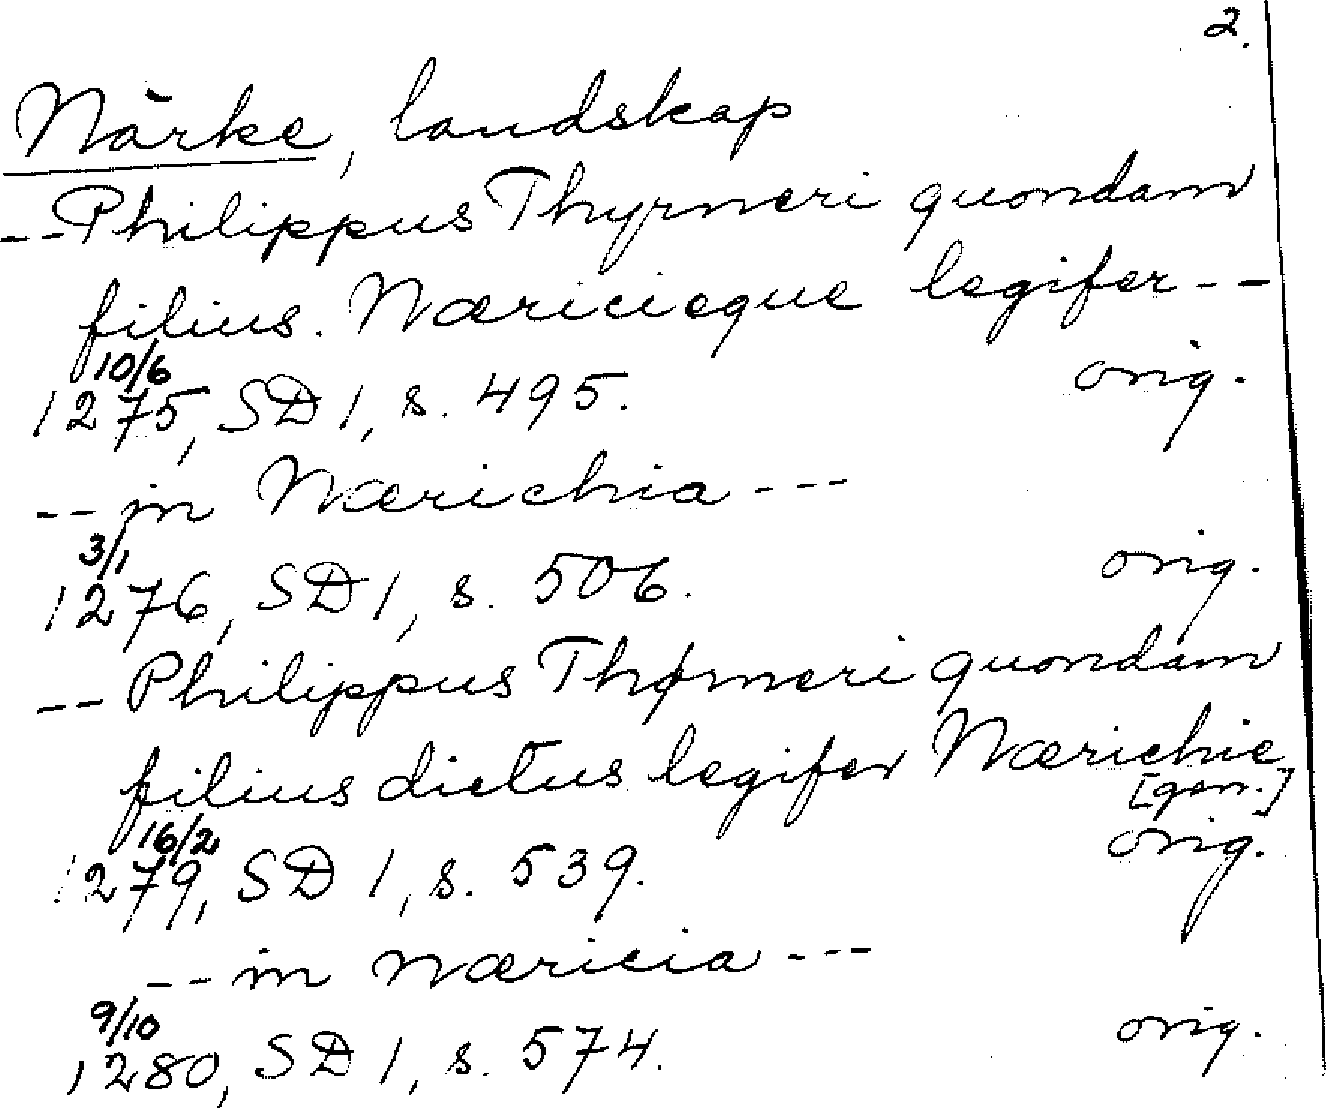 2.
Närke, landskap
-- Philippus Thyrneri quondam
filius. Næricieque legifer --
10/6
1275, SD 1, s. 495. orig.
-- in Nærichia ---
3/1
1276, SD 1, s. 506. orig.
-- Philippus Thørneri quondam
filius dictus legifer Nærichie
[gen.]
16/2 orig.
1279, SD 1, s. 539.
-- in Næricia ---
9/10
1280, SD 1, s. 574. orig.